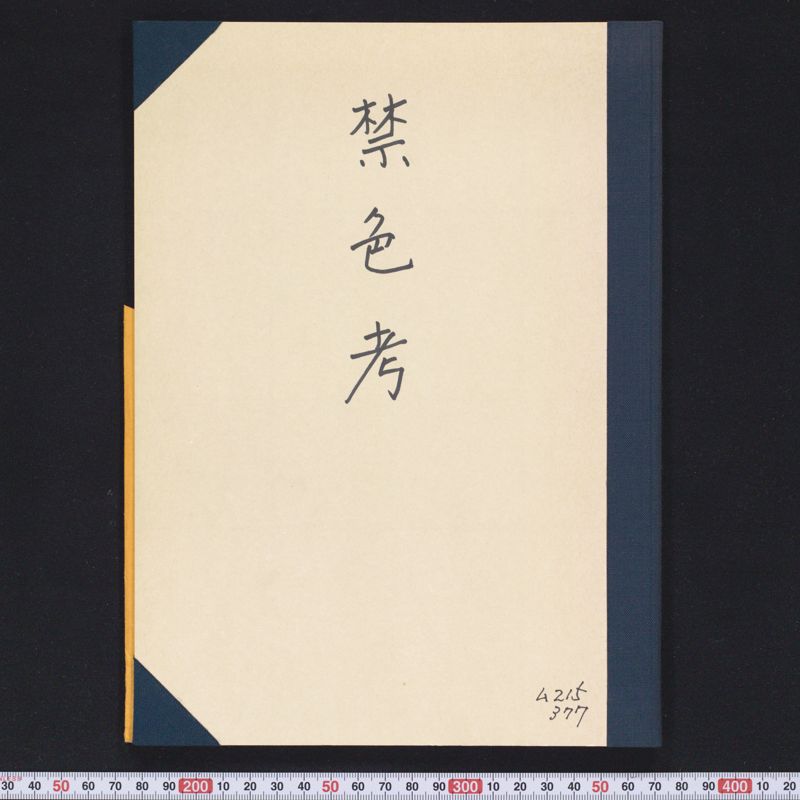 禁色考
ム215
377
30 40 50 60 70 80 90 200 10 20 30 40 50 60 70 80 90 300 10 20 30 40 50 60 70 80 90 400 10 20